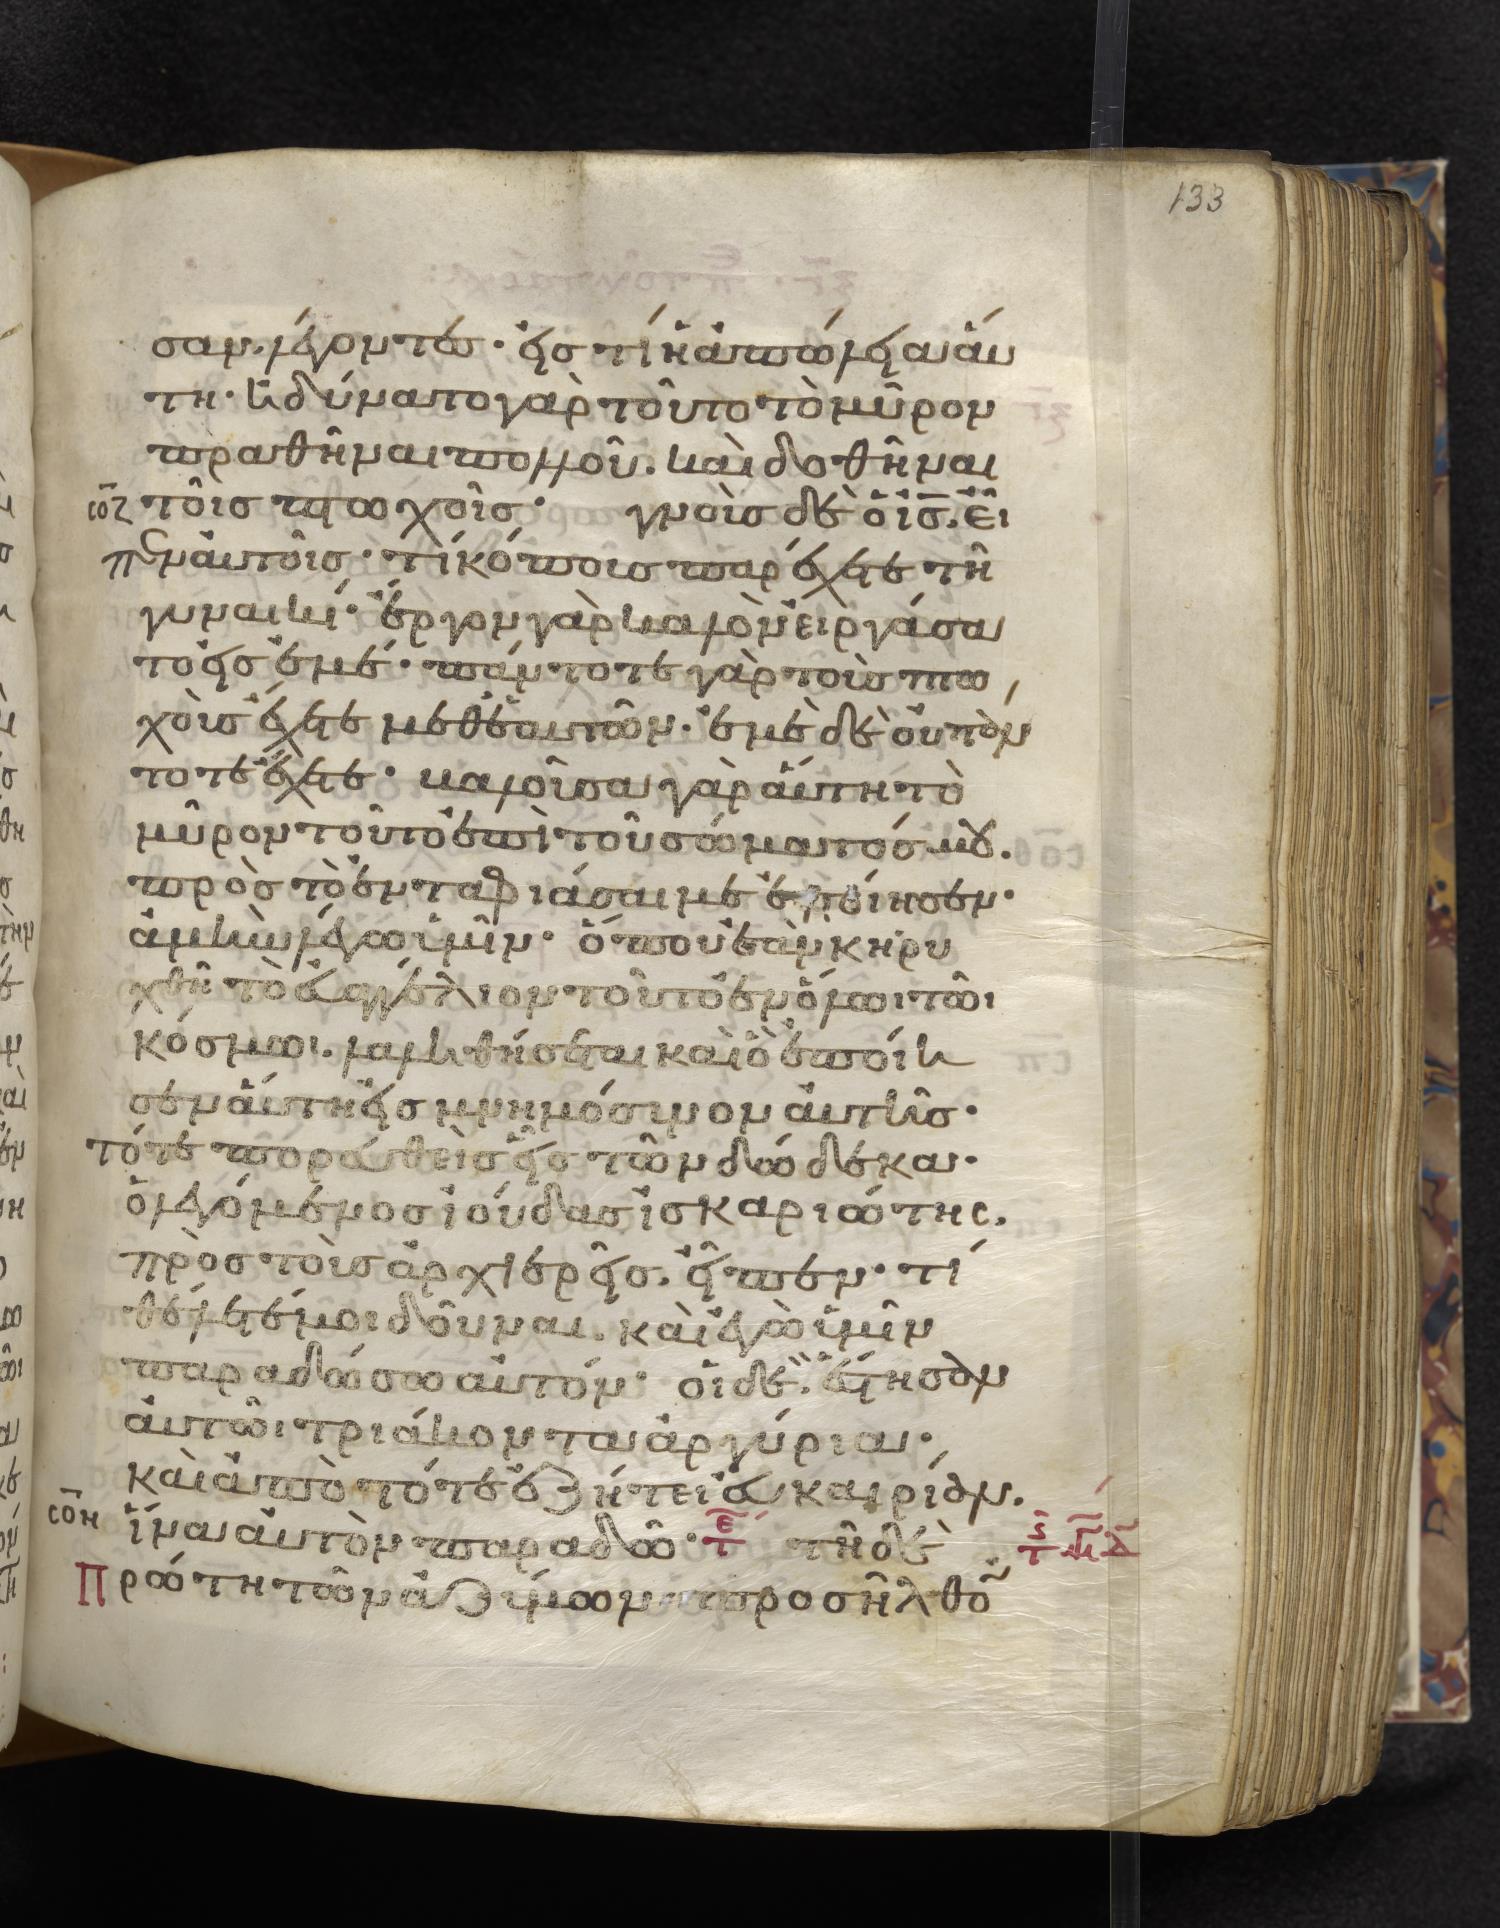 133
σαν. λέγοντες· εἰς τί ἡ ἀπώλεια αὕ
τη· ἠδύνατο γὰρ τοῦτο τὸ μῦρον
πραθῆναι πολλοῦ. καὶ δοθῆναι
σος τοῖς πτωχοῖς· γνοὺς δὲ ὁ ἰς. εἶ
πεν αὐτοῖς· τί κόπους παρέχετε τῆ
γυναικί· ἔργον γὰρ καλὸν εἰργάσα
το εἰς ἐμέ· πάντοτε γὰρ τοὺς πτω
χοὺς ἔχετε μεθ' ἑαυτῶν. ἐμὲ δὲ οὐ πάν
τοτε ἔχετε· βαλοῦσα γὰρ αὕτη τὸ
μῦρον τοῦτο ἐπὶ τοῦ σώματός μου.
πρὸς τὸ ἐνταφιάσαι με ἐποίησεν·
ἀμὴν λέγω ὑμῖν· ὅπου ἐὰν κηρυ
χθῆ τὸ εὐαγγέλιον τοῦτο ἐν ὅλωι τῶι
κόσμωι. λαληθήσεται καὶ ὃ ἐποίη
σεν αὕτη εἰς μνημόσυνον αὐτῆς·
τότε πορευθεὶς εἷς τῶν δώδεκα·
ὁ λεγόμενος ἰούδας ἰσκαριώτης.
πρὸς τοὺς ἀρχιερεῖς. εἶπεν· τί
θέλετέ μοι δοῦναι. καὶ ἐγὼ ὑμῖν
παραδώσω αὐτόν· οἱ δὲ. ἔστησαν
αὐτῶι τριάκοντα ἀργύρια·
καὶ ἀπὸ τότε ἐζήτει εὐκαιρίαν.
σοη ἵνα αὐτὸν παραδῶ· τῆ δὲ
Πρώτη τῶν ἀζύμων προσῆλθον